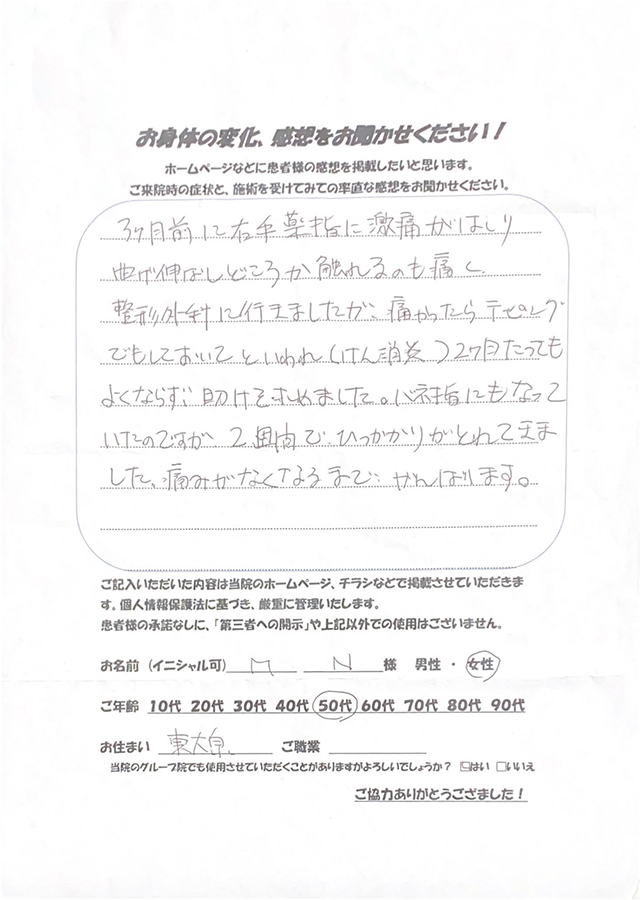 お身体の変化、感想をお聞かせください！
ホームページなどに患者様の感想を掲載したいと思います。
ご来院時の症状と、施術を受けてみての率直な感想をお聞かせください。
3ヶ月前に右手薬指に激痛がはしり
曲げ伸ばしどころか触れるのも痛く、
整形外科に行きましたが、痛かったらテーピング
でもしておいてといわれ(けん消炎)2ヶ月たっても
よくならず、助けを求めました。バネ指にもなって
いたのですが 2週間で ひっかかりがとれてきま
した。痛みがなくなるまで、がんばります。
ご記入いただいた内容は当院のホームページ、チラシなどで掲載させていただきま
す。個人情報保護法に基づき、厳重に管理いたします。
患者様の承諾なしに、「第三者への開示」や上記以外での使用はございません。
お名前（イニシャル可） M N 様 男性 ・ 女性
ご年齢 10代 20代 30代 40代 50代 60代 70代 80代 90代
お住まい 東大阜 ご職業
当院のグループ院でも使用させていただくことがありますがよろしいでしょうか？ ☑はい □いいえ
ご協力ありがとうござました！